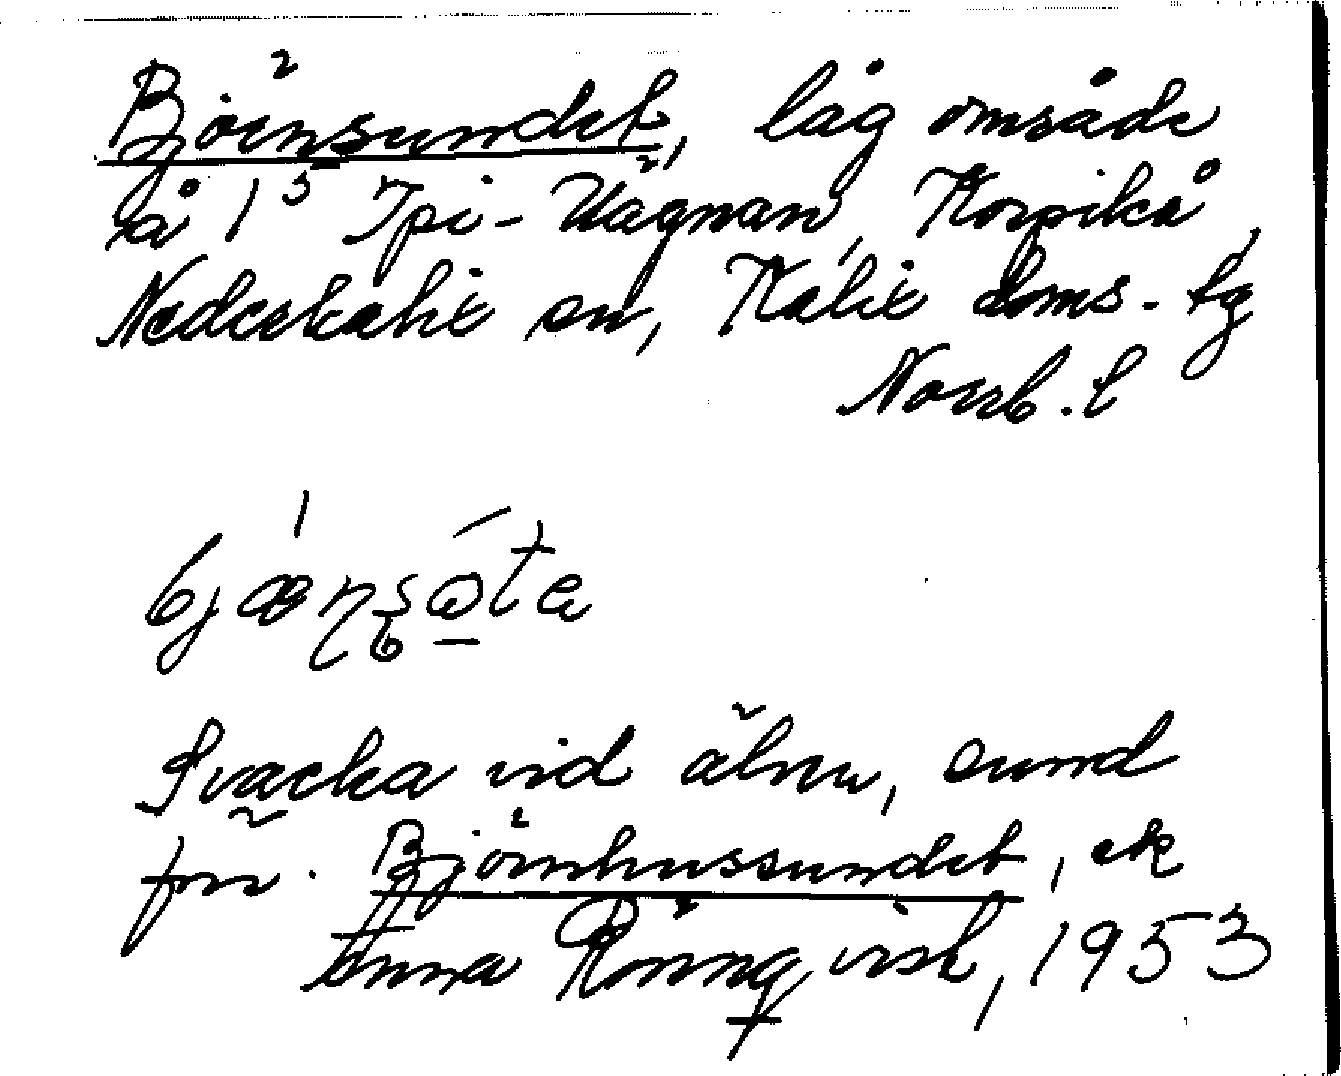 Björnsundet, låg område
å 1⁵ Ypi-Vägnan, Korpikå,
Nederkalix sn, Kalix doms. tg
Norrb. l
bjæɳʂøta
Svacka vid älven, sund
förr. Björnhussundet, ek
Anna Rönnqvist, 1953